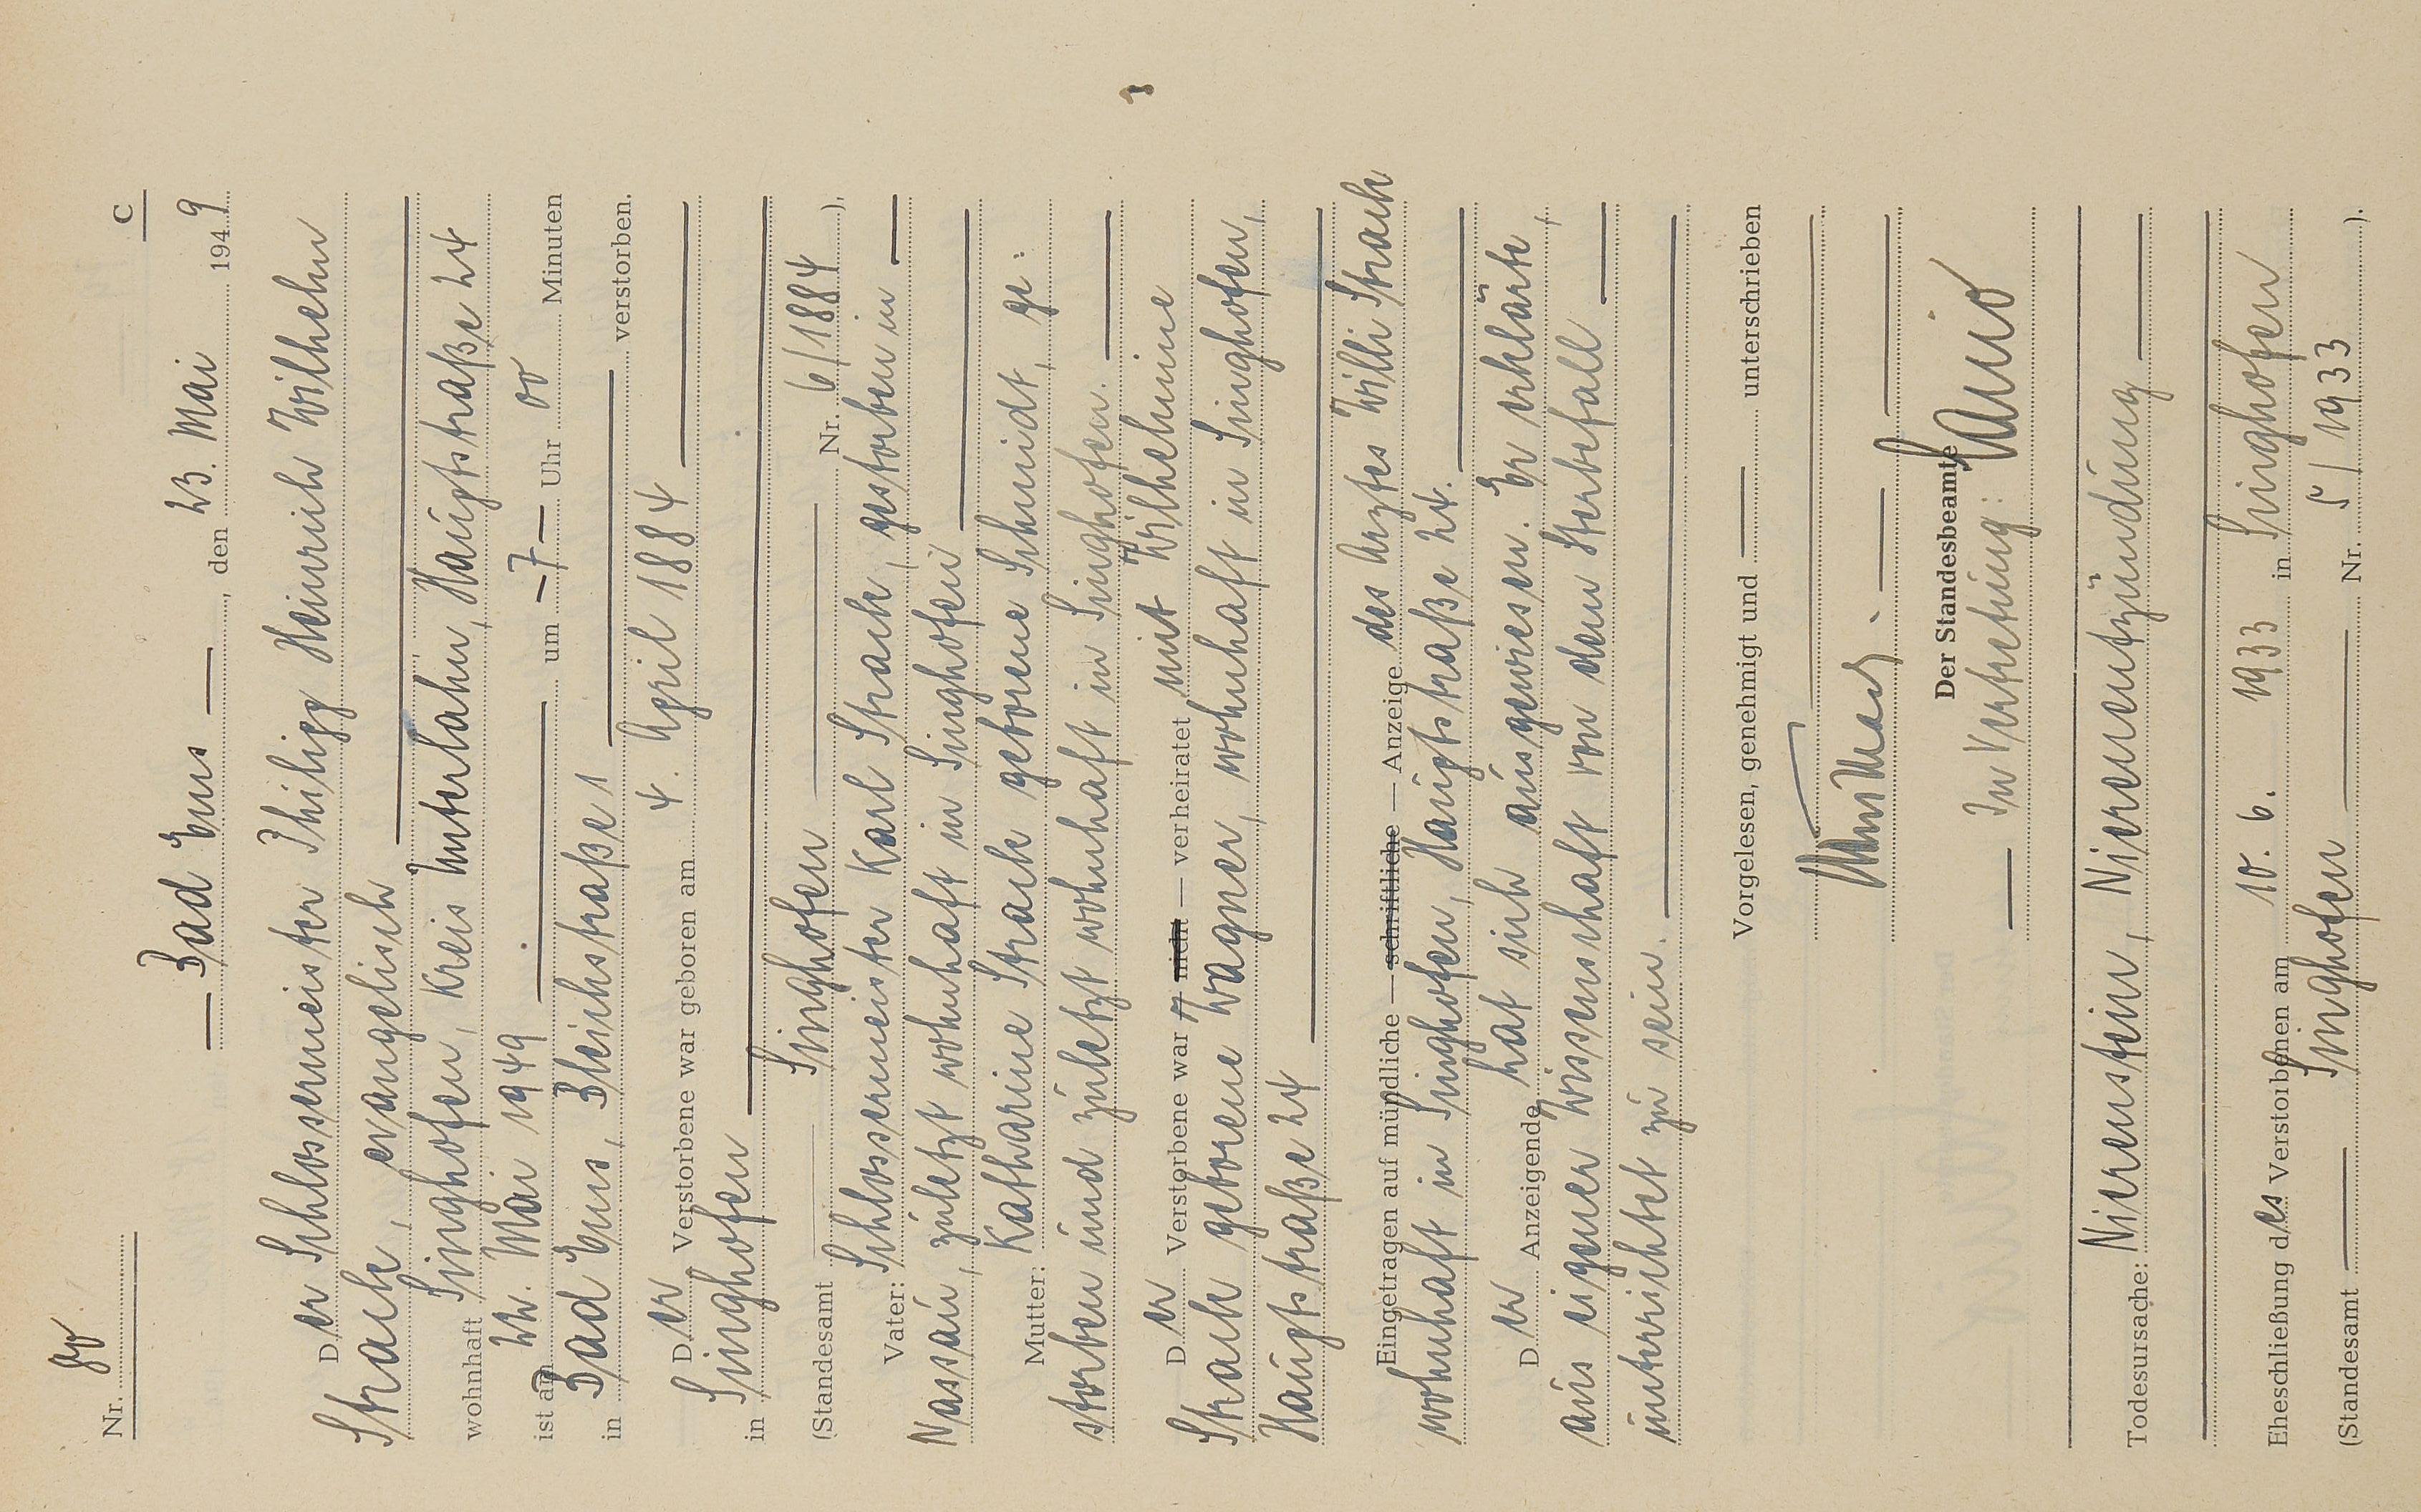 Nr. 80
C
— Bad Ems —, den 23. Mai 1949
D er Schlossermeister Philipp Heinrich Wilhelm
Strack, evangelisch —
wohnhaft Singhofen, Kreis Unterlahn, Hauptstraße 24
ist am 22. Mai 1949 — um —7— Uhr 00 Minuten
in Bad Ems, Bleichstraße 1 — verstorben.
D er Verstorbene war geboren am 4. April 1884 —
in Singhofen —
(Standesamt — Singhofen — Nr. 6/1884 ).
Vater: Schlossermeister Karl Strack, gestorben in —
Nassau, zuletzt wohnhaft in Singhofen —
Mutter: Katharine Strack geborene Schmidt, ge:
storben und zuletzt wohnhaft in Singhofen. —
D er Verstorbene war — nicht — verheiratet mit Wilhelmine
Strack geborene Wagner, wohnhaft in Singhofen,
Hauptstraße 24 —
Eingetragen auf mündliche — schriftliche — Anzeige des Arztes Willi Strack
wohnhaft in Singhofen, Hauptstraße 24. —
D er Anzeigende hat sich ausgewiesen. Er erklärte,
aus eigener Wissenschaft von dem Sterbefall —
unterrichtet zu sein. —
Vorgelesen, genehmigt und — unterschrieben
Der Standesbeamte
— In Vertretung:
Todesursache: Nierenstein, Nierenentzündung —
Eheschließung des Verstorbenen am 10. 6. 1933 in Singhofen
(Standesamt — Singhofen — Nr. 5/1933 ).